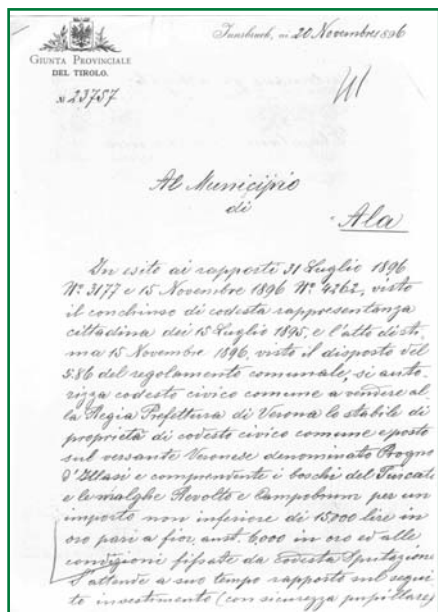 Innsbruck, ai 20 Novembre 1896
GIUNTA PROVINCIALE
DEL TIROLO.
№ 23757
Al Municipio
di
Ala
In esito ai rapporti 31 Luglio 1896
Nº 3177 e 15 Novembre 1896 Nº 4262, visto
il conchiuso di codesta rappresentanza
cittadina dei 15 Luglio 1895, e l'atto di sti-
ma 15 Novembre 1896, visto il disposto del
§ 86 del regolamento comunale, si auto-
rizza codesto civico comune a vendere al-
la Regia Prefettura di Verona lo stabile di
proprietà di codesto civico comune e posto
sul versante Veronese denominato Progno
d'Illasi e comprendente i boschi del
e le malghe Revolto e Campobrun per un
importo non inferiore di 15000 lire in
oro pari a fior. aust. 6,000 in oro ed alle
condizioni fissate da codesta Deputazione
S'attende a suo tempo rapporto sul segui-
to investimento (con sicurezza pupillare)